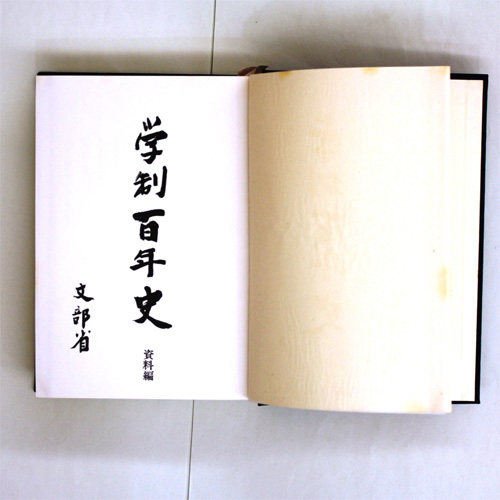 学制百年史
資料編
文部省